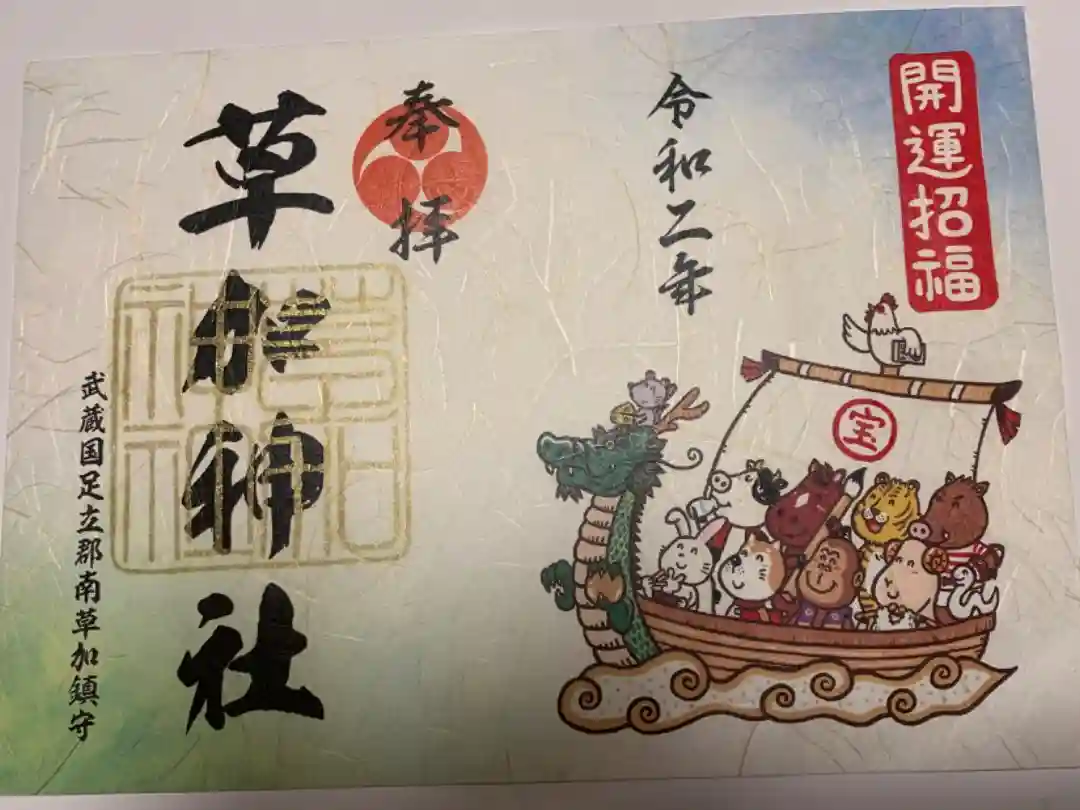 開運招福
令和二年
奉拝
草加神社
武蔵国足立郡南草加鎮守
宝
草加
神社